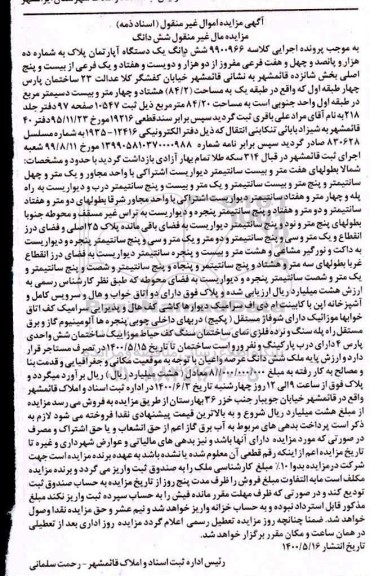 آگهی مزایده اموال غیر منقول (اسناد ذمه)
مزایده مال غیر منقول شش دانگ
به موجب پرونده اجرایی کلاسه ۹۹۰۰۹۶۶ شش دانگ یک دستگاه آپارتمان پلاک به شماره ده
هزار و پانصد و چهل و هفت فرعی مفروز از دو هزار و دویست و هفتاد و یک فرعی از بیست و پنج
اصلی بخش شانزده قائمشهر به نشانی قائمشهر خیابان کفشگر کلا عدالت ۲۳ ساختمان پارس
چهار طبقه اول که واقع در طبقه یک به مساحت (۸۴/۲) هشتاد و چهار متر و بیست دسیمتر مربع
در طبقه اول واحد جنوبی است به مساحت ۸۴/۲۰ مترمربع ذیل ثبت ۱۰۵۴۷ صفحه ۹۷ دفتر جلد
۲۱۸ به نام آقای مراد علی باقری ثبت گردید سپس برابر سند قطعی ۱۹۲۱۶ مورخ ۹۵/۱۱/۲۳ دفتر ۴۰
قائمشهر به شیرزاد بابائی تنکابنی انتقال که ذیل دفتر الکترونیکی ۱۲۴۱۶-۱۹۳۵ به شماره مسلسل
۸۳۰۶۲۸ صادر گردید سپس برابر نامه شماره ۱۳۹۹۰۵۸۱۰۳۷۰۰۰۰۹۸۸ مورخ ۹۹/۸/۱۱ شعبه
اجرای ثبت قائمشهر در قبال ۳۱۴ سکه طلا تمام بهار آزادی بازداشت گردید با حدود و مشخصات:
شمالا بطولهای هفت متر و بیست سانتیمتر دیواریست اشتراکی با واحد مجاور و یک متر و چهل
سانتیمتر و پنج متر و بیست سانتیمتر و یک متر و بیست و پنج سانتیمتر درب و دیواریست به راه
پله و چهار متر و هفتاد سانتیمتر دیواریست اشتراکی با واحد مجاور شرقا بطولهای دو متر و هفتاد
سانتیمتر و دو متر و هفتاد و پنج سانتیمتر پنجره و دیواریست به تراس غیر مسقف و محوطه جنوبا
بطولهای پنج متر و نود و پنج سانتیمتر دیواریست به فضای باقی مانده پلاک ۲۵ اصلی و فضای درز
انقطاع و یک متر و سی و پنج سانتیمتر و دو متر و یک متر و سی و پنج سانتیمتر پنجره و دیواریست
به داکت و نورگیر مشاعی و هشت متر و بیست و پنجره سانتیمتر دیواریست به فضای درز انقطاع
غربا بطولهای سه متر و هشتاد و پنج سانتیمتر و پنجاه و پنج سانتیمتر و شصت و پنج سانتیمتر و
یک متر و شصت سانتیمتر پنجره و دیواریست به فضای محوطه که طبق نظر کارشناس رسمی به
ارزش هشت میلیارد ریال ارزیابی شده و پلاک فوق دارای دو اتاق خواب و هال و سرویس کامل و
آشپزخانه اپن با کابینت ام دی اف سرامیک دیوارها کاشی کف هال و پذیرایی سرامیک کف اتاق
خوابها موزائیک دارای شوفاژ مستقل (پکیج) دربهای داخلی چوبی پنجره ها آلومینیوم گاز و برق
مستقل راه پله سنگ و نرده فلزی نمای ساختمان سنگ کف حیاط موزاییک ساختمان شش واحدی
پارس ۴ دارای درب پارکینگ و نفر رو و است ساختمان تا تاریخ ۱۴۰۰/۵/۱۵ در تصرف مستاجر قرار
دارد و ارزش پایه ملک شش دانگ عرصه و اعیان با توجه به موقعیت مکانی و جغرافیایی و قدمت بنا
و مصالح به کار رفته به مبلغ ۸/۰۰۰/۰۰۰/۰۰۰ معادل (هشت میلیارد ریال) ریال برآورد میگردد و
پلاک فوق از ساعت ۹ الی ۱۲ روز چهارشنبه تاریخ ۱۴۰۰/۶/۳ در اداره ثبت اسناد و املاک قائمشهر
واقع در قائمشهر خیابان جویبار جنب خزر ۳۶ بهارستان از طریق مزایده به فروش می رسد مزایده
از مبلغ هشت میلیارد ریال شروع و به بالاترین قیمت پیشنهادی نقدا فروخته می شود لازم به
ذکر است پرداخت بدهی های مربوط به آب برق گاز اعم از حق انشعاب و یا حق اشتراک و مصرف
در صورتی که مورد مزایده دارای آنها باشد و نیز بدهی های مالیاتی و عوارض شهرداری و غیره تا
تاریخ مزایده اعم از اینکه رقم قطعی آن معلوم شده یا نشده باشد به عهده برنده مزایده است جهت
شرکت در مزایده بدوا ۱۰٪ مبلغ کارشناسی ملک را به صندوق ثبت واریز می گردد و برنده مزایده
مکلف است مابه التفاوت مبلغ فروش را ظرف مدت پنج روز از تاریخ مزایده به حساب صندوق ثبت
تودیع کند و در صورتی که ظرف مهلت مقرر مانده فیش را به حساب سپرده ثبت واریز نکند مبلغ
مذکور قابل استرداد نبوده و به حساب خزانه واریز خواهد شد و نیم عشر و حق مزایده نقدا وصول
خواهد شد. ضمنا چنانچه روز مزایده تعطیل رسمی اعلام گردد مزایده روز اداری بعد از تعطیلی
در همان ساعت و مکان مقرر برگزار خواهد شد.
تاریخ انتشار ۱۴۰۰/۵/۱۶
رئیس اداره ثبت اسناد و املاک قائمشهر - رحمت سلمانی